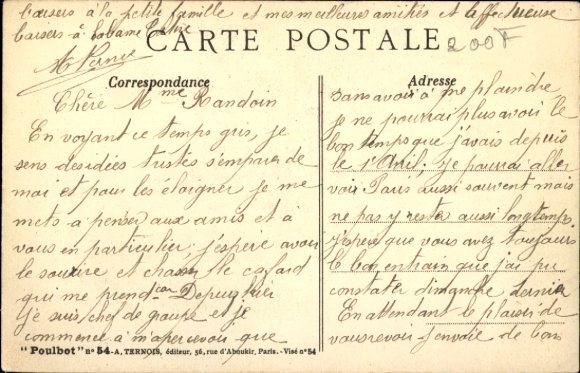 baisers à la petite famille et mes meilleures amitiés et affectueuse
baisers à Madame
CARTE POSTALE
200F
Correspondance
Chère Mme Randoin
En voyant ce temps gris, je
sens des idées tristes s'emparer de
moi et pour les éloigner je me
mets à penser aux amis et à
vous en particulier. j'espère avoir
le sourire et chasser le cafard
qui me prend car Depuis hier
je suis chef de groupe et je
commence à m'apercevoir que
Adresse
sans avoir à me plaindre
je ne pourrai plus avoir le
bon temps que j'avais depuis
le 1er Avril; je pourrai aller
voir Paris aussi souvent mais
ne pas y rester aussi longtemps.
J'espère que vous avez toujours
le bon entrain que j'ai pu
constater dimanche dernier
En attendant le plaisir de
vous revoir j'envoie de bons
"Poulbot" n° 54 - A, TERNOIS, éditeur, 56, rue d'Aboukir, Paris. - Visé n° 54